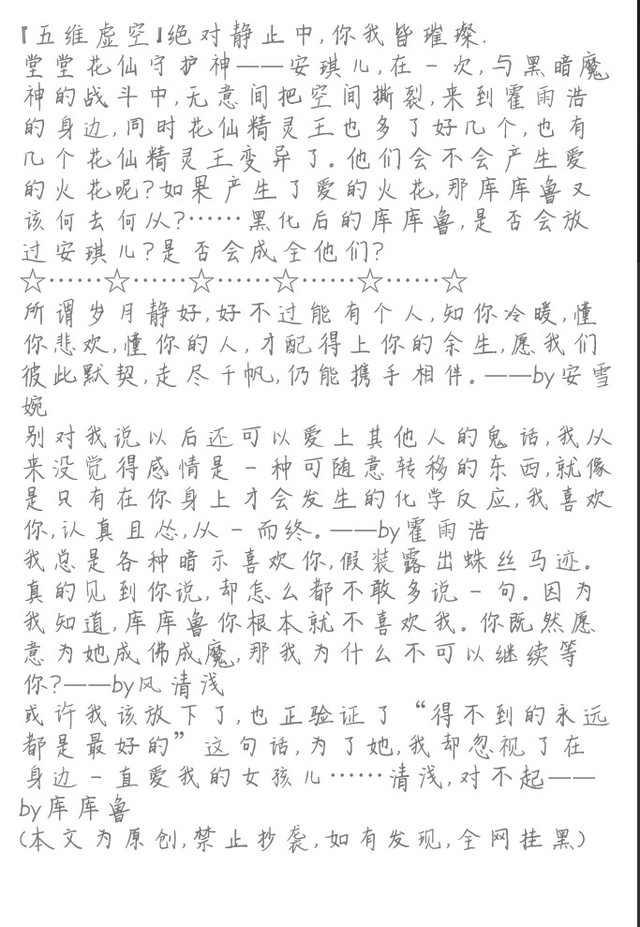 『五维虚空』绝对静止中,你我皆璀璨.
堂堂花仙守护神——安琪儿,在一次,与黑暗魔
神的战斗中,无意间把空间撕裂,来到霍雨浩
的身边,同时花仙精灵王也多了好几个,也有
几个花仙精灵王变异了。他们会不会产生爱
的火花呢?如果产生了爱的火花,那库库鲁又
该何去何从?……黑化后的库库鲁,是否会放
过安琪儿?是否会成全他们?
☆……☆……☆……☆……☆……☆
所谓岁月静好,好不过能有个人,知你冷暖,懂
你悲欢,懂你的人,才配得上你的余生,愿我们
彼此默契,走尽千帆,仍能携手相伴。——by安雪
婉
别对我说以后还可以爱上其他人的鬼话,我从
来没觉得感情是一种可随意转移的东西,就像
是只有在你身上才会发生的化学反应,我喜欢
你,认真且怂,从一而终。——by霍雨浩
我总是各种暗示喜欢你,假装露出蛛丝马迹。
真的见到你说,却怎么都不敢多说一句。因为
我知道,库库鲁你根本就不喜欢我。你既然愿
意为她成佛成魔,那我为什么不可以继续等
你?——by风清浅
或许我该放下了,也正验证了“得不到的永远
都是最好的”这句话,为了她,我却忽视了在
身边一直爱我的女孩儿……清浅,对不起——
by库库鲁
(本文为原创,禁止抄袭,如有发现,全网挂黑)